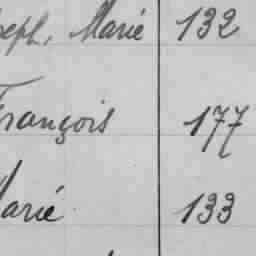 seph, Marie 132
François 177
Marie 133